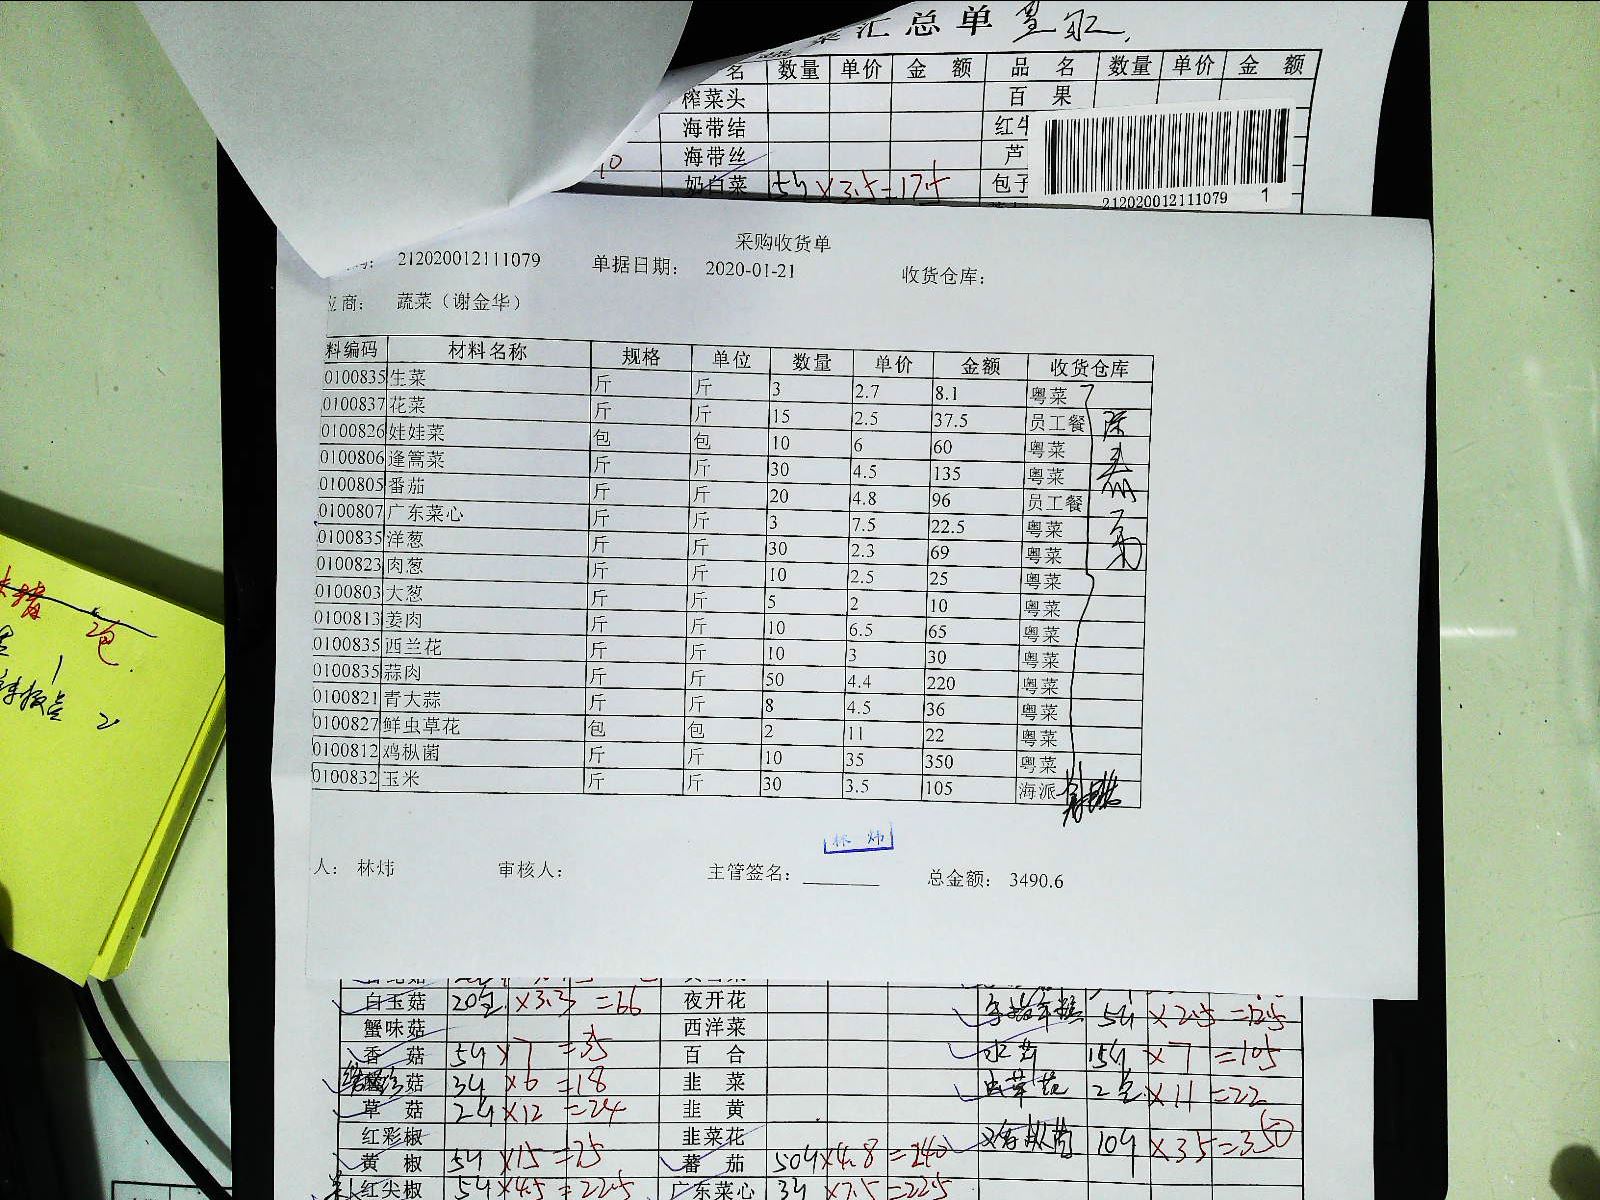 汇总单
名 数量 单价 金 额 品 名 数量 单价 金 额
榨菜头 百 果
海带结 红牛
海带丝 芦
奶白菜 5斤×3.5=17.5 包子
212020012111079 1
采购收货单
212020012111079 单据日期: 2020-01-21 收货仓库:
应商: 蔬菜（谢金华）
料编码 材料名称 规格 单位 数量 单价 金额 收货仓库
0100835 生菜 斤 斤 3 2.7 8.1 粤菜
0100837 花菜 斤 斤 15 2.5 37.5 员工餐
0100826 娃娃菜 包 包 10 6 60 粤菜
0100806 逢篙菜 斤 斤 30 4.5 135 粤菜
0100805 番茄 斤 斤 20 4.8 96 员工餐
0100807 广东菜心 斤 斤 3 7.5 22.5 粤菜
0100835 洋葱 斤 斤 30 2.3 69 粤菜
0100823 肉葱 斤 斤 10 2.5 25 粤菜
0100803 大葱 斤 斤 5 2 10 粤菜
0100813 姜肉 斤 斤 10 6.5 65 粤菜
0100835 西兰花 斤 斤 10 3 30 粤菜
0100835 蒜肉 斤 斤 50 4.4 220 粤菜
0100821 青大蒜 斤 斤 8 4.5 36 粤菜
0100827 鲜虫草花 包 包 2 11 22 粤菜
0100812 鸡枞菌 斤 斤 10 35 350 粤菜
0100832 玉米 斤 斤 30 3.5 105 海派
林 炜
人: 林炜 审核人: 主管签名: 总金额: 3490.6
白玉菇 20包 ×3.3 =66 夜开花
蟹味菇 西洋菜 5斤 ×2.5 =12.5
香 菇 5斤 ×7 =35 百 合 15斤 ×7 =105
菇 3斤 ×6 =18 韭 菜 虫草花 2包 ×11 =22
草 菇 2斤 ×12 =24 韭 黄
红彩椒 韭菜花 鸡枞菌 10斤 ×35 =350
黄 椒 5斤 ×15 =75 蕃 茄 50斤×4.8 =240
红尖椒 5斤 ×4.5 =22.5 广东菜心 3斤 ×7.5 =22.5